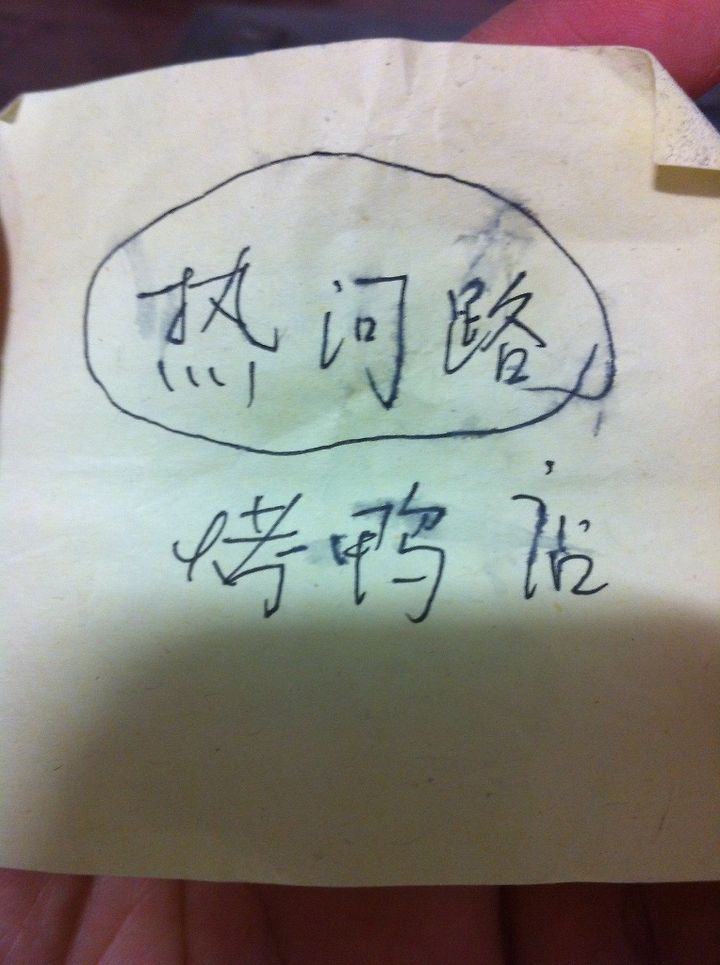 热问路
烤鸭店